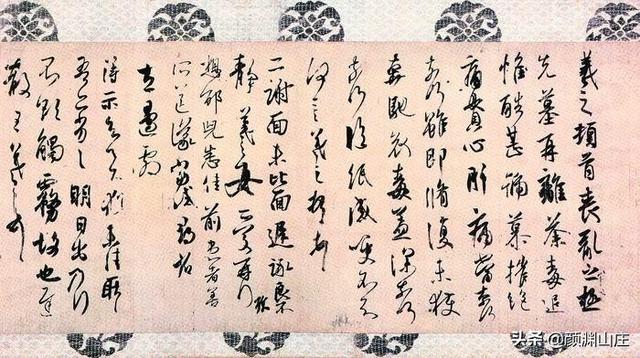 羲之頓首喪亂之極
先墓再離荼毒追
惟酷甚號慕摧絕
痛貫心肝痛當奈何
奈何雖即脩復未獲
奔馳哀毒益深奈何
奈何臨紙感哽不知
何言羲之頓首頓首
二謝面未比面遲詠良不
靜羲之女愛再拜
想邵兒悉佳前患者善
所送議當試尋省
左邊劇
得示知足下猶未佳耿耿
吾亦劣劣明日出乃行
不欲觸霧故也遲
散王羲之頓首
头条 @颜渊山庄